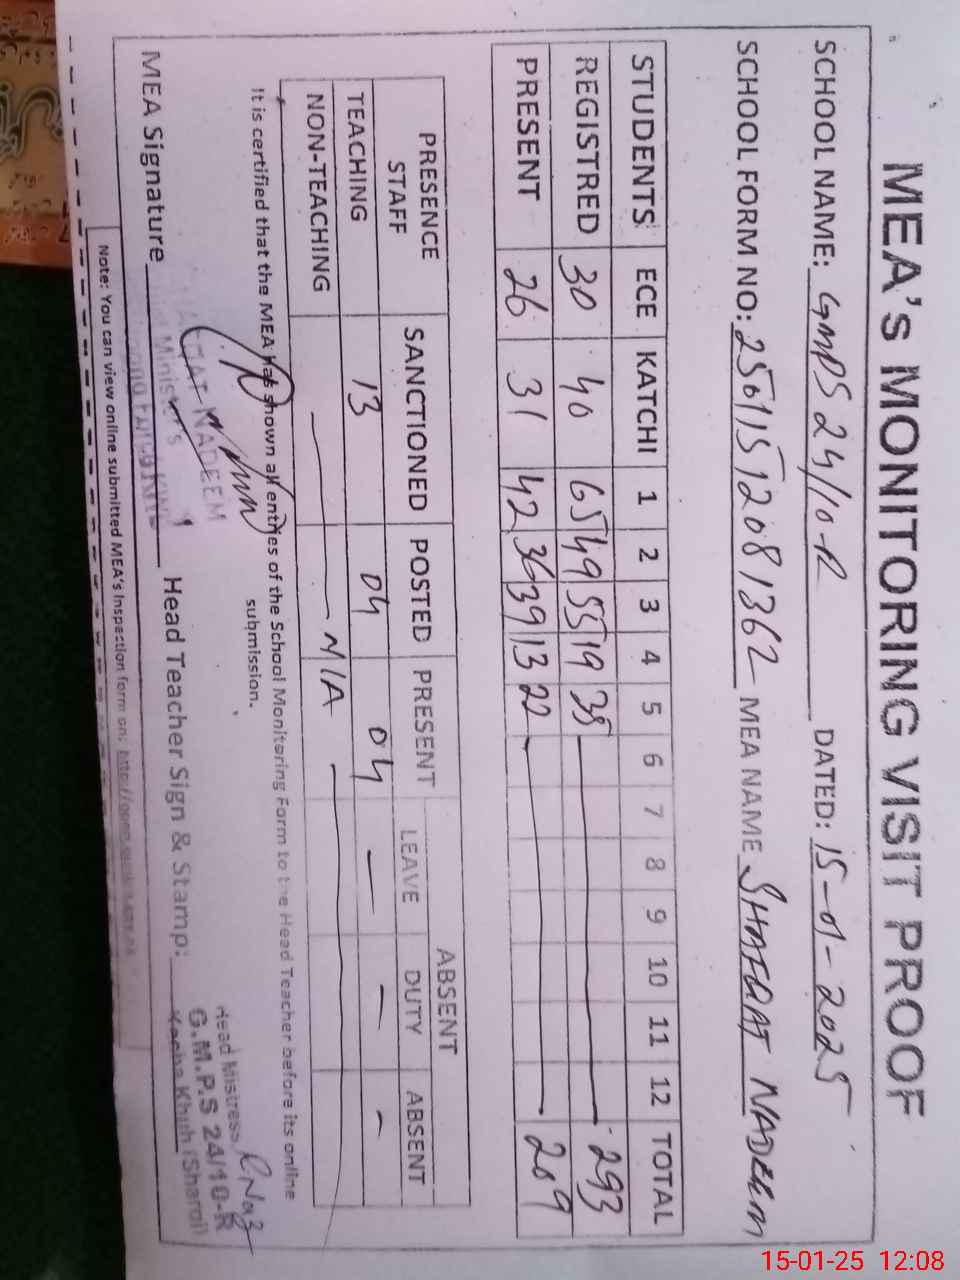 MEA's MONITORING VISIT PROOF
SCHOOL NAME: GMPS 24/10-R DATED: 15-01-2025
SCHOOL FORM NO: 25011512081362 MEA NAME SHAFQAT NADEEM
STUDENTS ECE KATCHI 1 2 3 4 5 6 7 8 9 10 11 12 TOTAL
REGISTRED 30 40 65 49 55 19 35 293
PRESENT 26 31 42 36 39 13 22 209
PRESENCE STAFF SANCTIONED POSTED PRESENT ABSENT
LEAVE DUTY ABSENT
TEACHING 13 04 04 — — —
NON-TEACHING — N/A —
It is certified that the MEA has shown all entries of the School Monitoring Form to the Head Teacher before its online
submission.
MEA Signature Head Teacher Sign & Stamp:
SHAFQAT NADEEM
Head Mistress
G.M.P.S 24/10-R
Note: You can view online submitted MEA's Inspection form on:
15-01-25 12:08